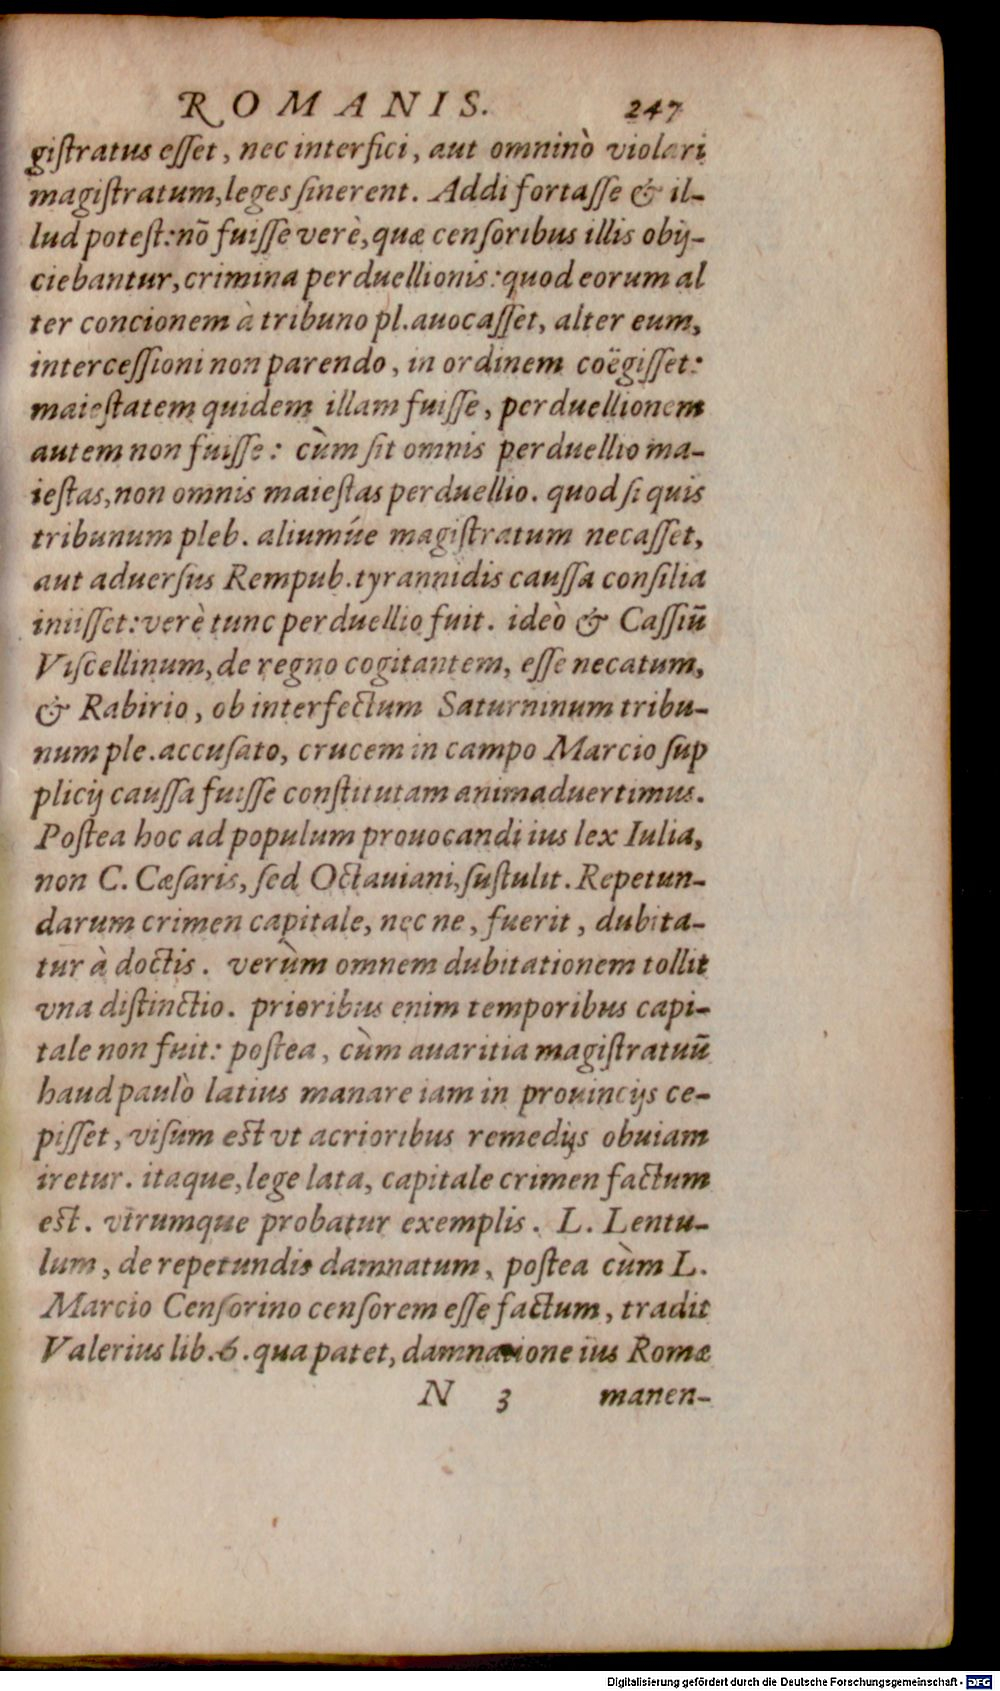 ROMANIS. 247
giſtratus eſſet, nec interfici, aut omninò violari
magiſtratum, leges ſinerent. Addi fortaſſe & il-
lud poteſt: nō fuiſſe verè, quæ cenſoribus illis obij-
ciebantur, crimina perduellionis: quod eorum al
ter concionem à tribuno pl. auocaſſet, alter eum,
interceſſioni non parendo, in ordinem coëgiſſet:
maieſtatem quidem illam fuiſſe, perduellionem
autem non fuiſſe: cùm ſit omnis perduellio ma-
ieſtas, non omnis maieſtas perduellio. quod ſi quis
tribunum pleb. aliumúe magiſtratum necaſſet,
aut aduerſus Rempub. tyrannidis cauſſa conſilia
iniiſſet: verè tunc perduellio fuit. ideò & Caſſiū
Viſcellinum, de regno cogitantem, eſſe necatum,
& Rabirio, ob interfectum Saturninum tribu-
num ple. accuſato, crucem in campo Marcio ſup
plicij cauſſa fuiſſe conſtitutam animaduertimus.
Poſtea hoc ad populum prouocandi ius lex Iulia,
non C. Cæſaris, ſed Octauiani, ſuſtulit. Repetun-
darum crimen capitale, nec ne, fuerit, dubita-
tur à doctis. verùm omnem dubitationem tollit
vna diſtinctio. prioribus enim temporibus capi-
tale non fuit: poſtea, cùm auaritia magiſtratuū
haud paulò latius manare iam in prouincijs ce-
piſſet, viſum eſt vt acrioribus remedijs obuiam
iretur. itaque, lege lata, capitale crimen factum
eſt. vtrumque probatur exemplis. L. Lentu-
lum, de repetundis damnatum, poſtea cùm L.
Marcio Cenſorino cenſorem eſſe factum, tradit
Valerius lib. 6. qua patet, damnatione ius Romæ
N 3 manen-
Digitalisierung gefördert durch die Deutsche Forschungsgemeinschaft - DFG